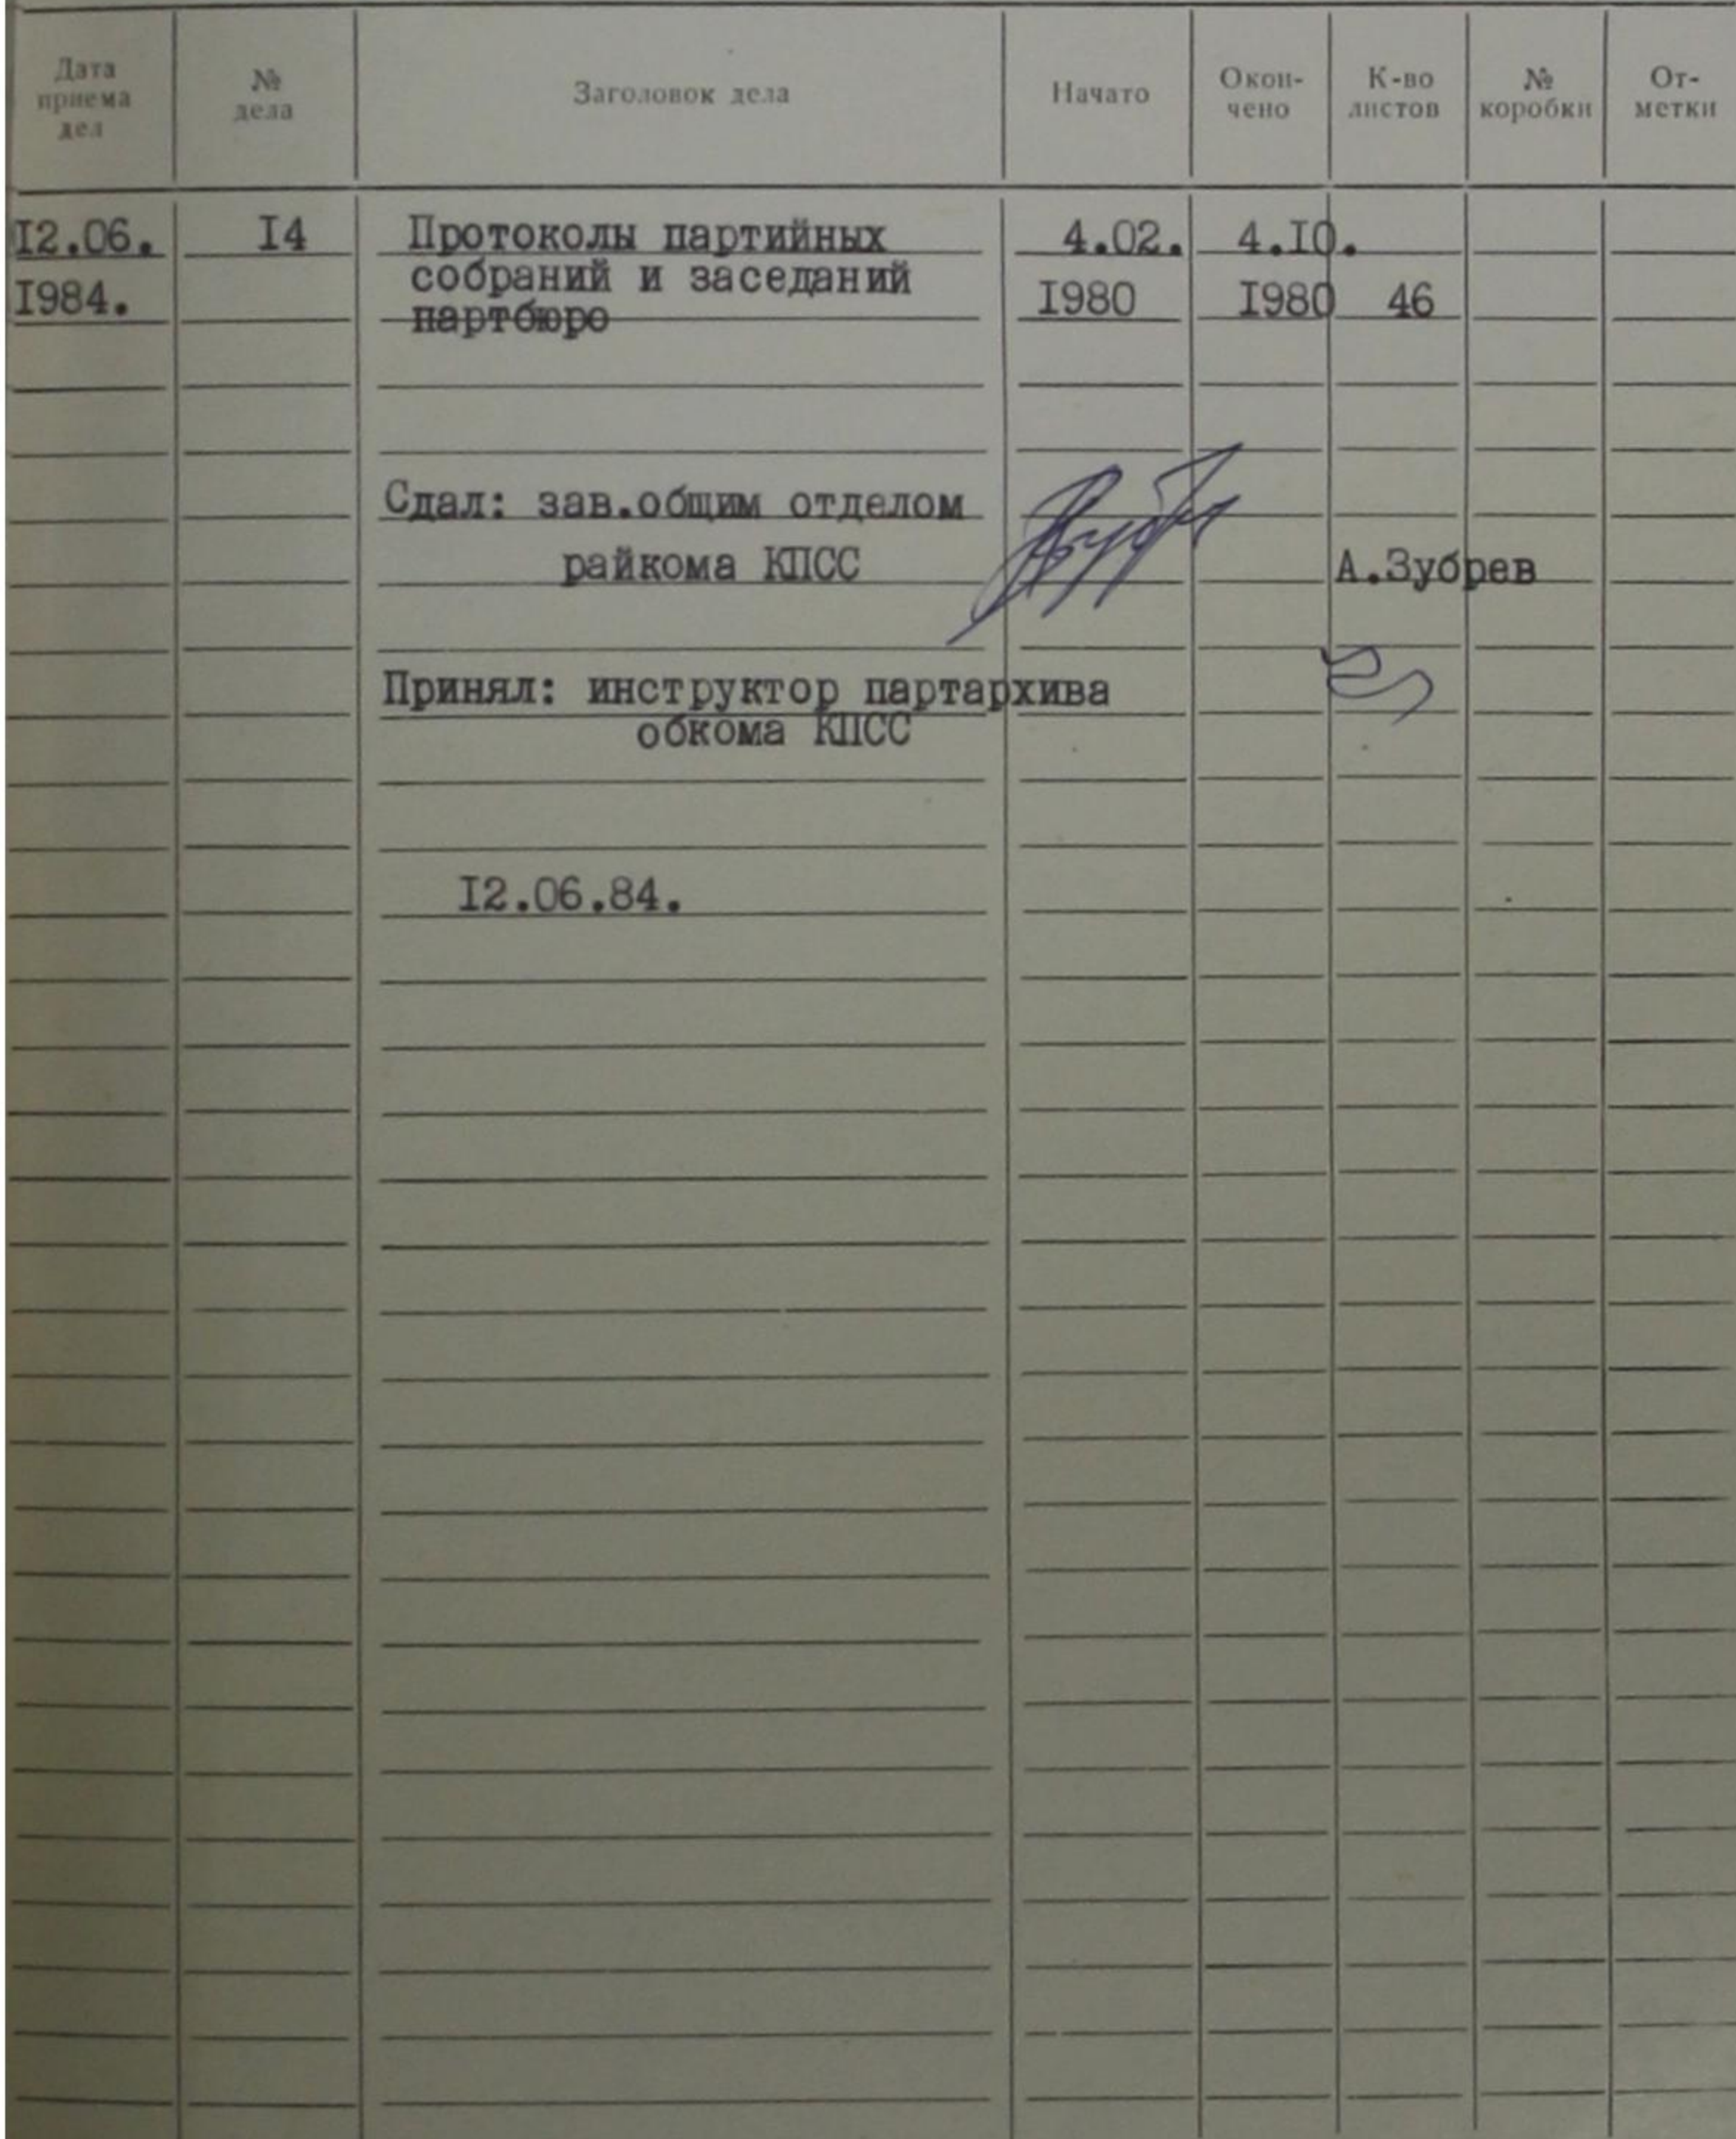 Дата приема дел № дела Заголовок дела Начато Окон- чено К-во листов № коробки От- метки
I2.06. I4 Протоколы партийных 4.02. 4.I0.
собраний и заседаний
I984. I980 I980 46
партбюро
Сдал: зав.общим отделом
райкома КПСС А.Зубрев
Принял: инструктор партархива
обкома КПСС
I2.06.84.